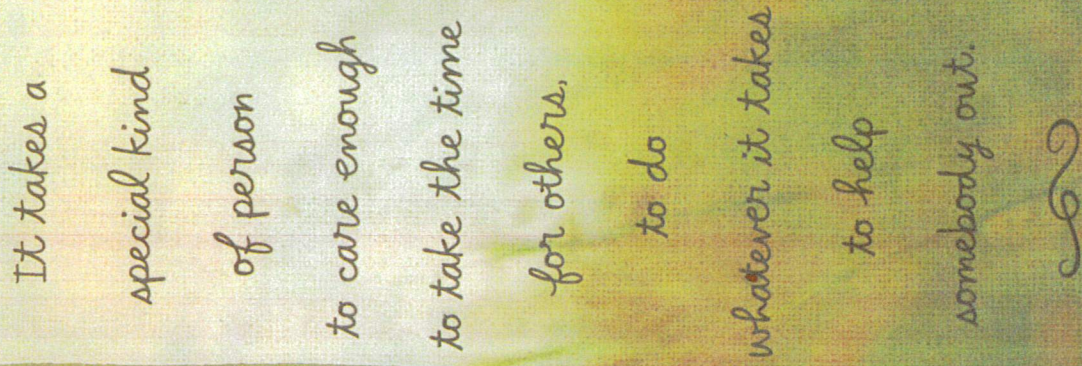 It takes a
special kind
of person
to care enough
to take the time
for others,
to do
whatever it takes
to help
somebody out.